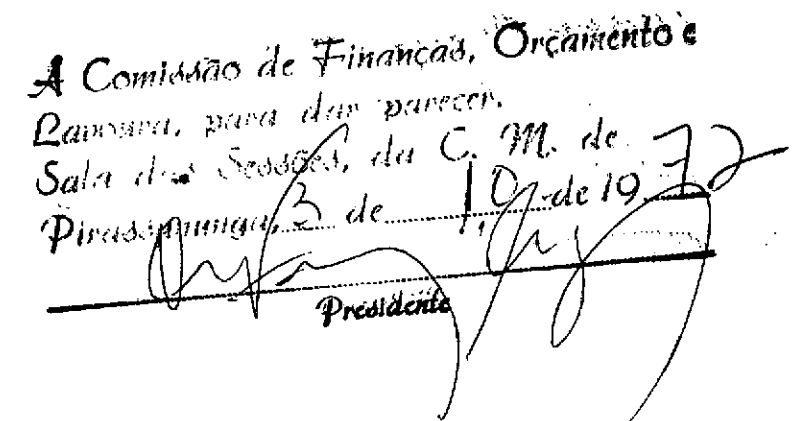 A Comissão de Finanças, Orçamento e
Lavoura, para dar parecer.
Sala das Sessões, da C. M. de
Pirassununga, 3 de 10 de 1972
Presidente